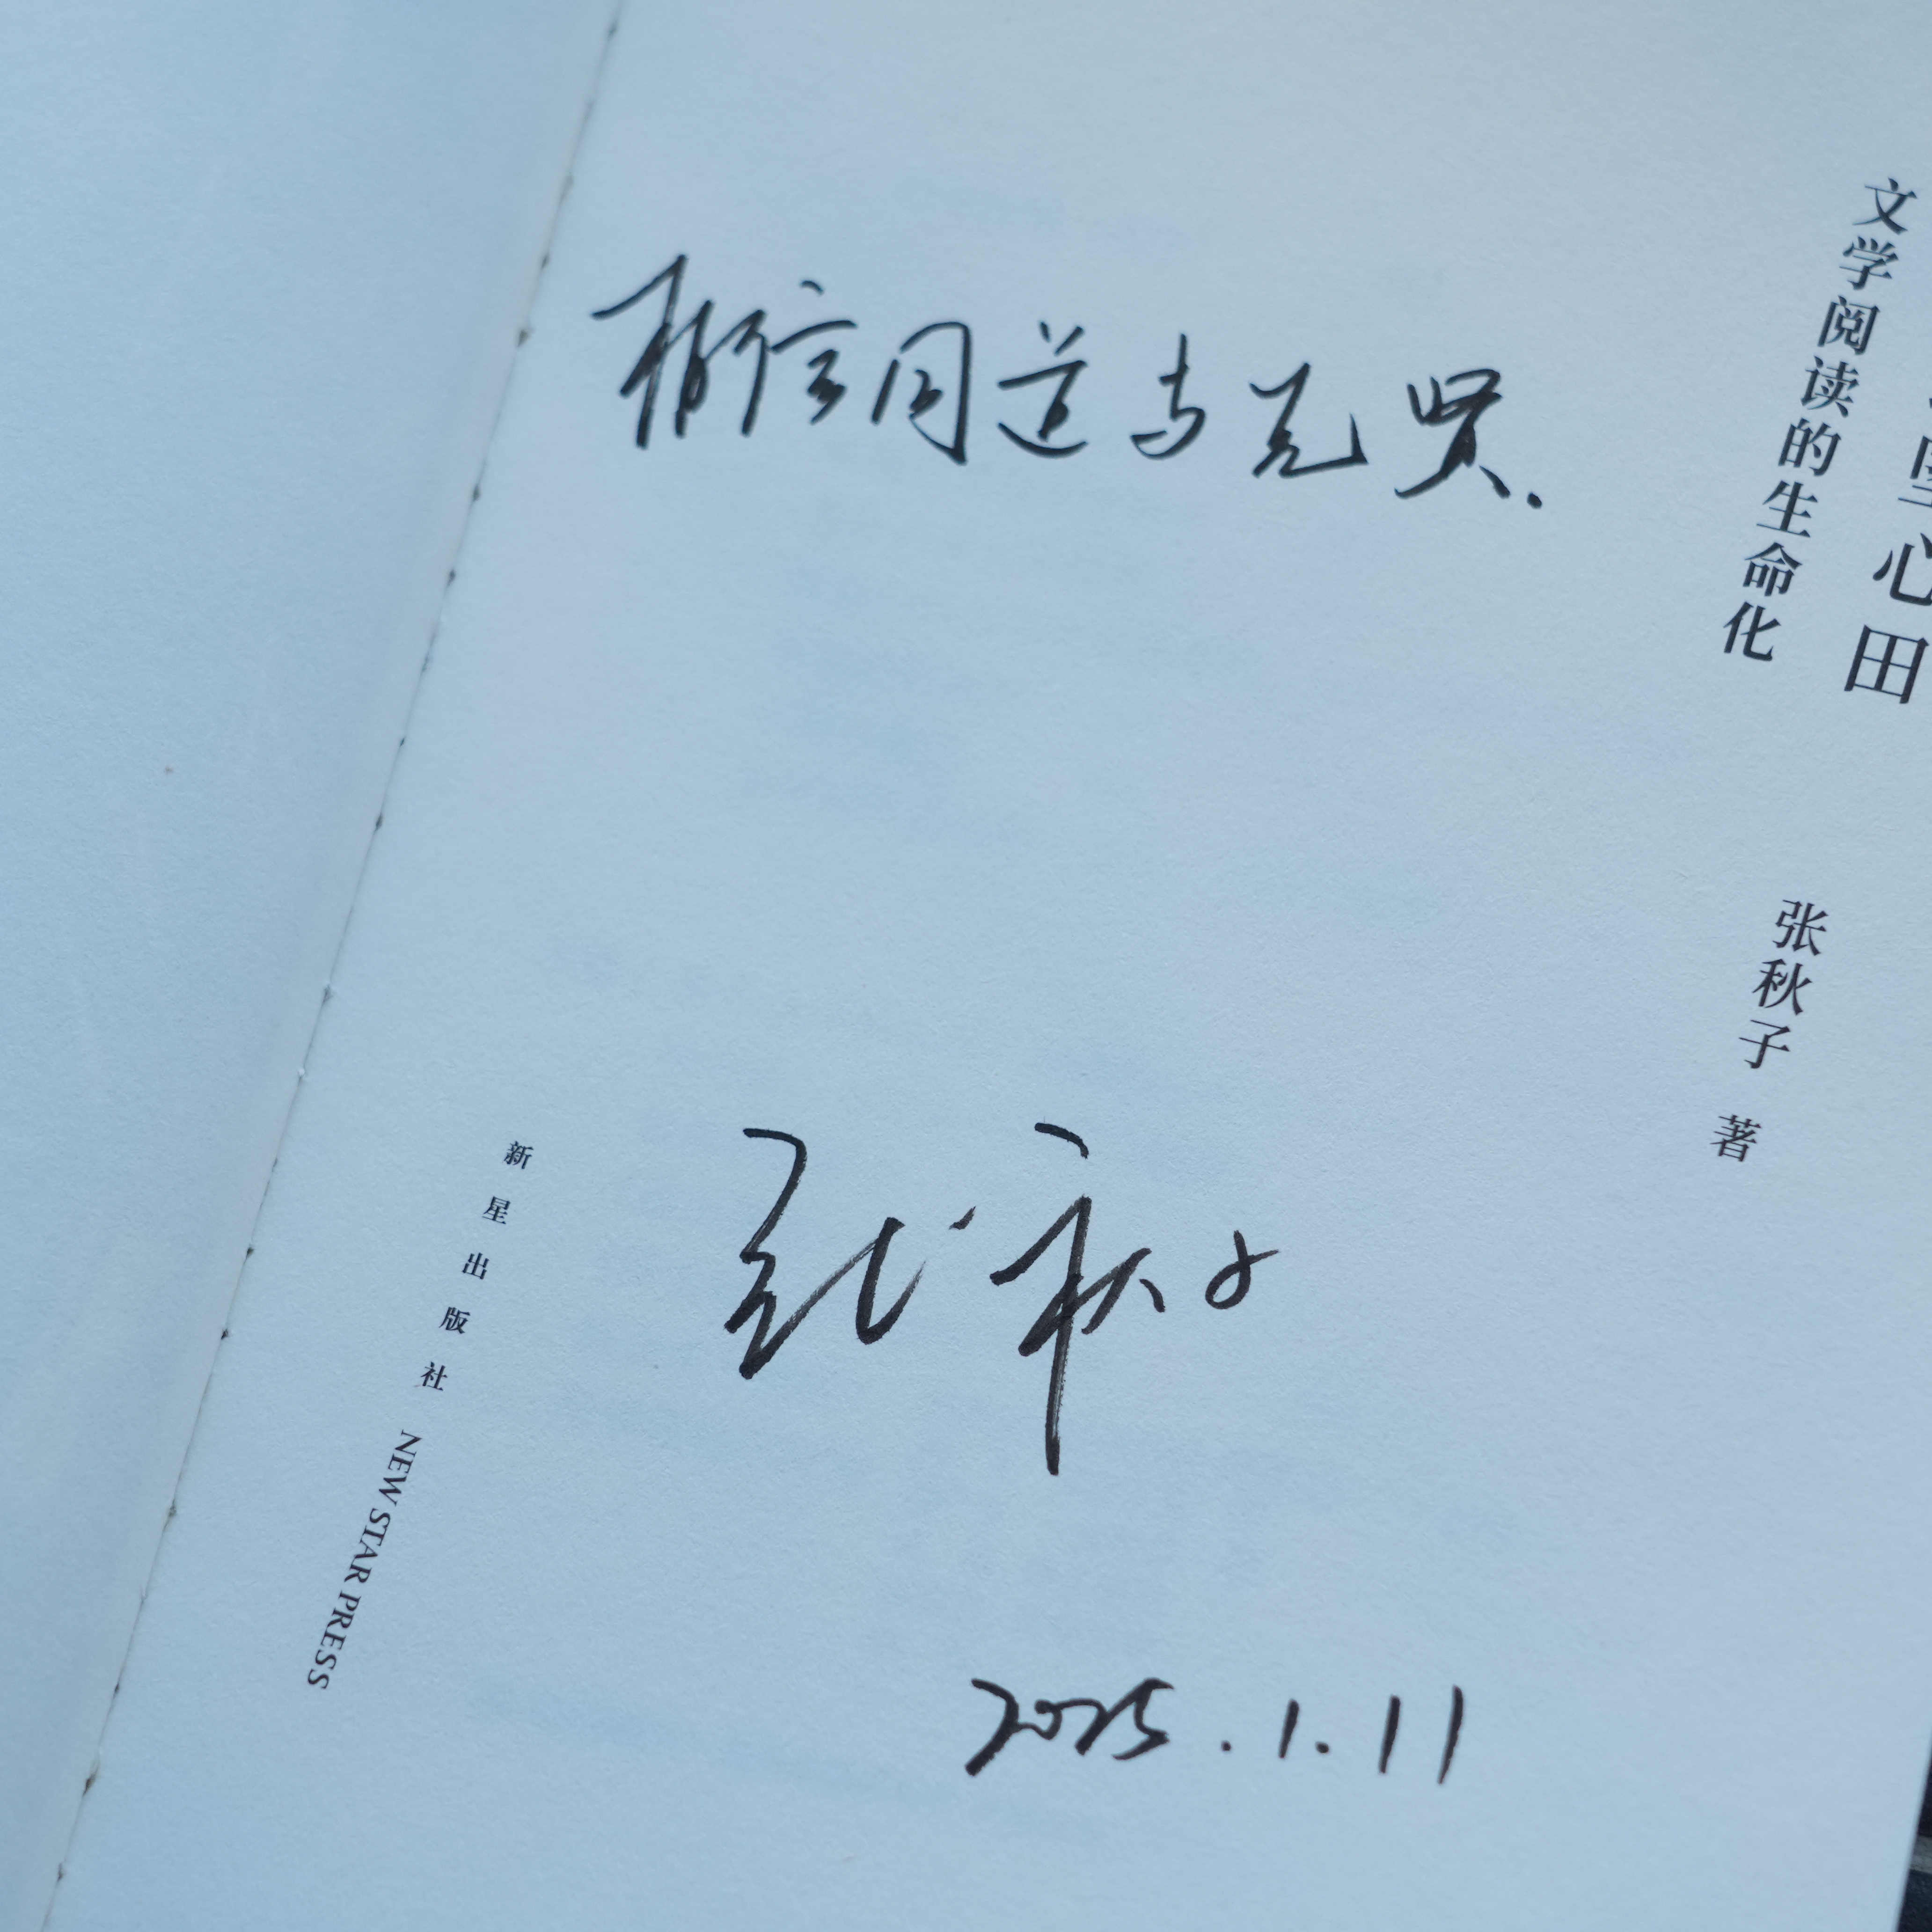 心田
文学阅读的生命化
张秋子 著
相信同道与先贤.
张秋子
2025.1.11
新星出版社 NEW STAR PRESS